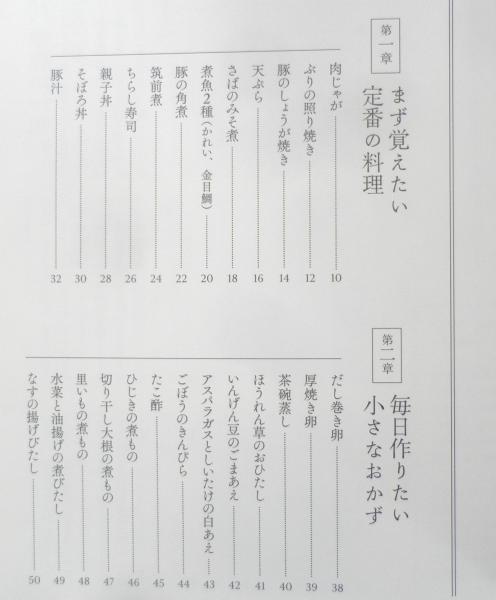 第一章
まず覚えたい
定番の料理
肉じゃが 10
ぶりの照り焼き 12
豚のしょうが焼き 14
天ぷら 16
さばのみそ煮 18
煮魚2種（かれい、金目鯛） 20
豚の角煮 22
筑前煮 24
ちらし寿司 26
親子丼 28
そぼろ丼 30
豚汁 32
第二章
毎日作りたい
小さなおかず
だし巻き卵 38
厚焼き卵 39
茶碗蒸し 40
ほうれん草のおひたし 41
いんげん豆のごまあえ 42
アスパラガスとしいたけの白あえ 43
ごぼうのきんぴら 44
たこ酢 45
ひじきの煮もの 46
切り干し大根の煮もの 47
里いもの煮もの 48
水菜と油揚げの煮びたし 49
なすの揚げびたし 50